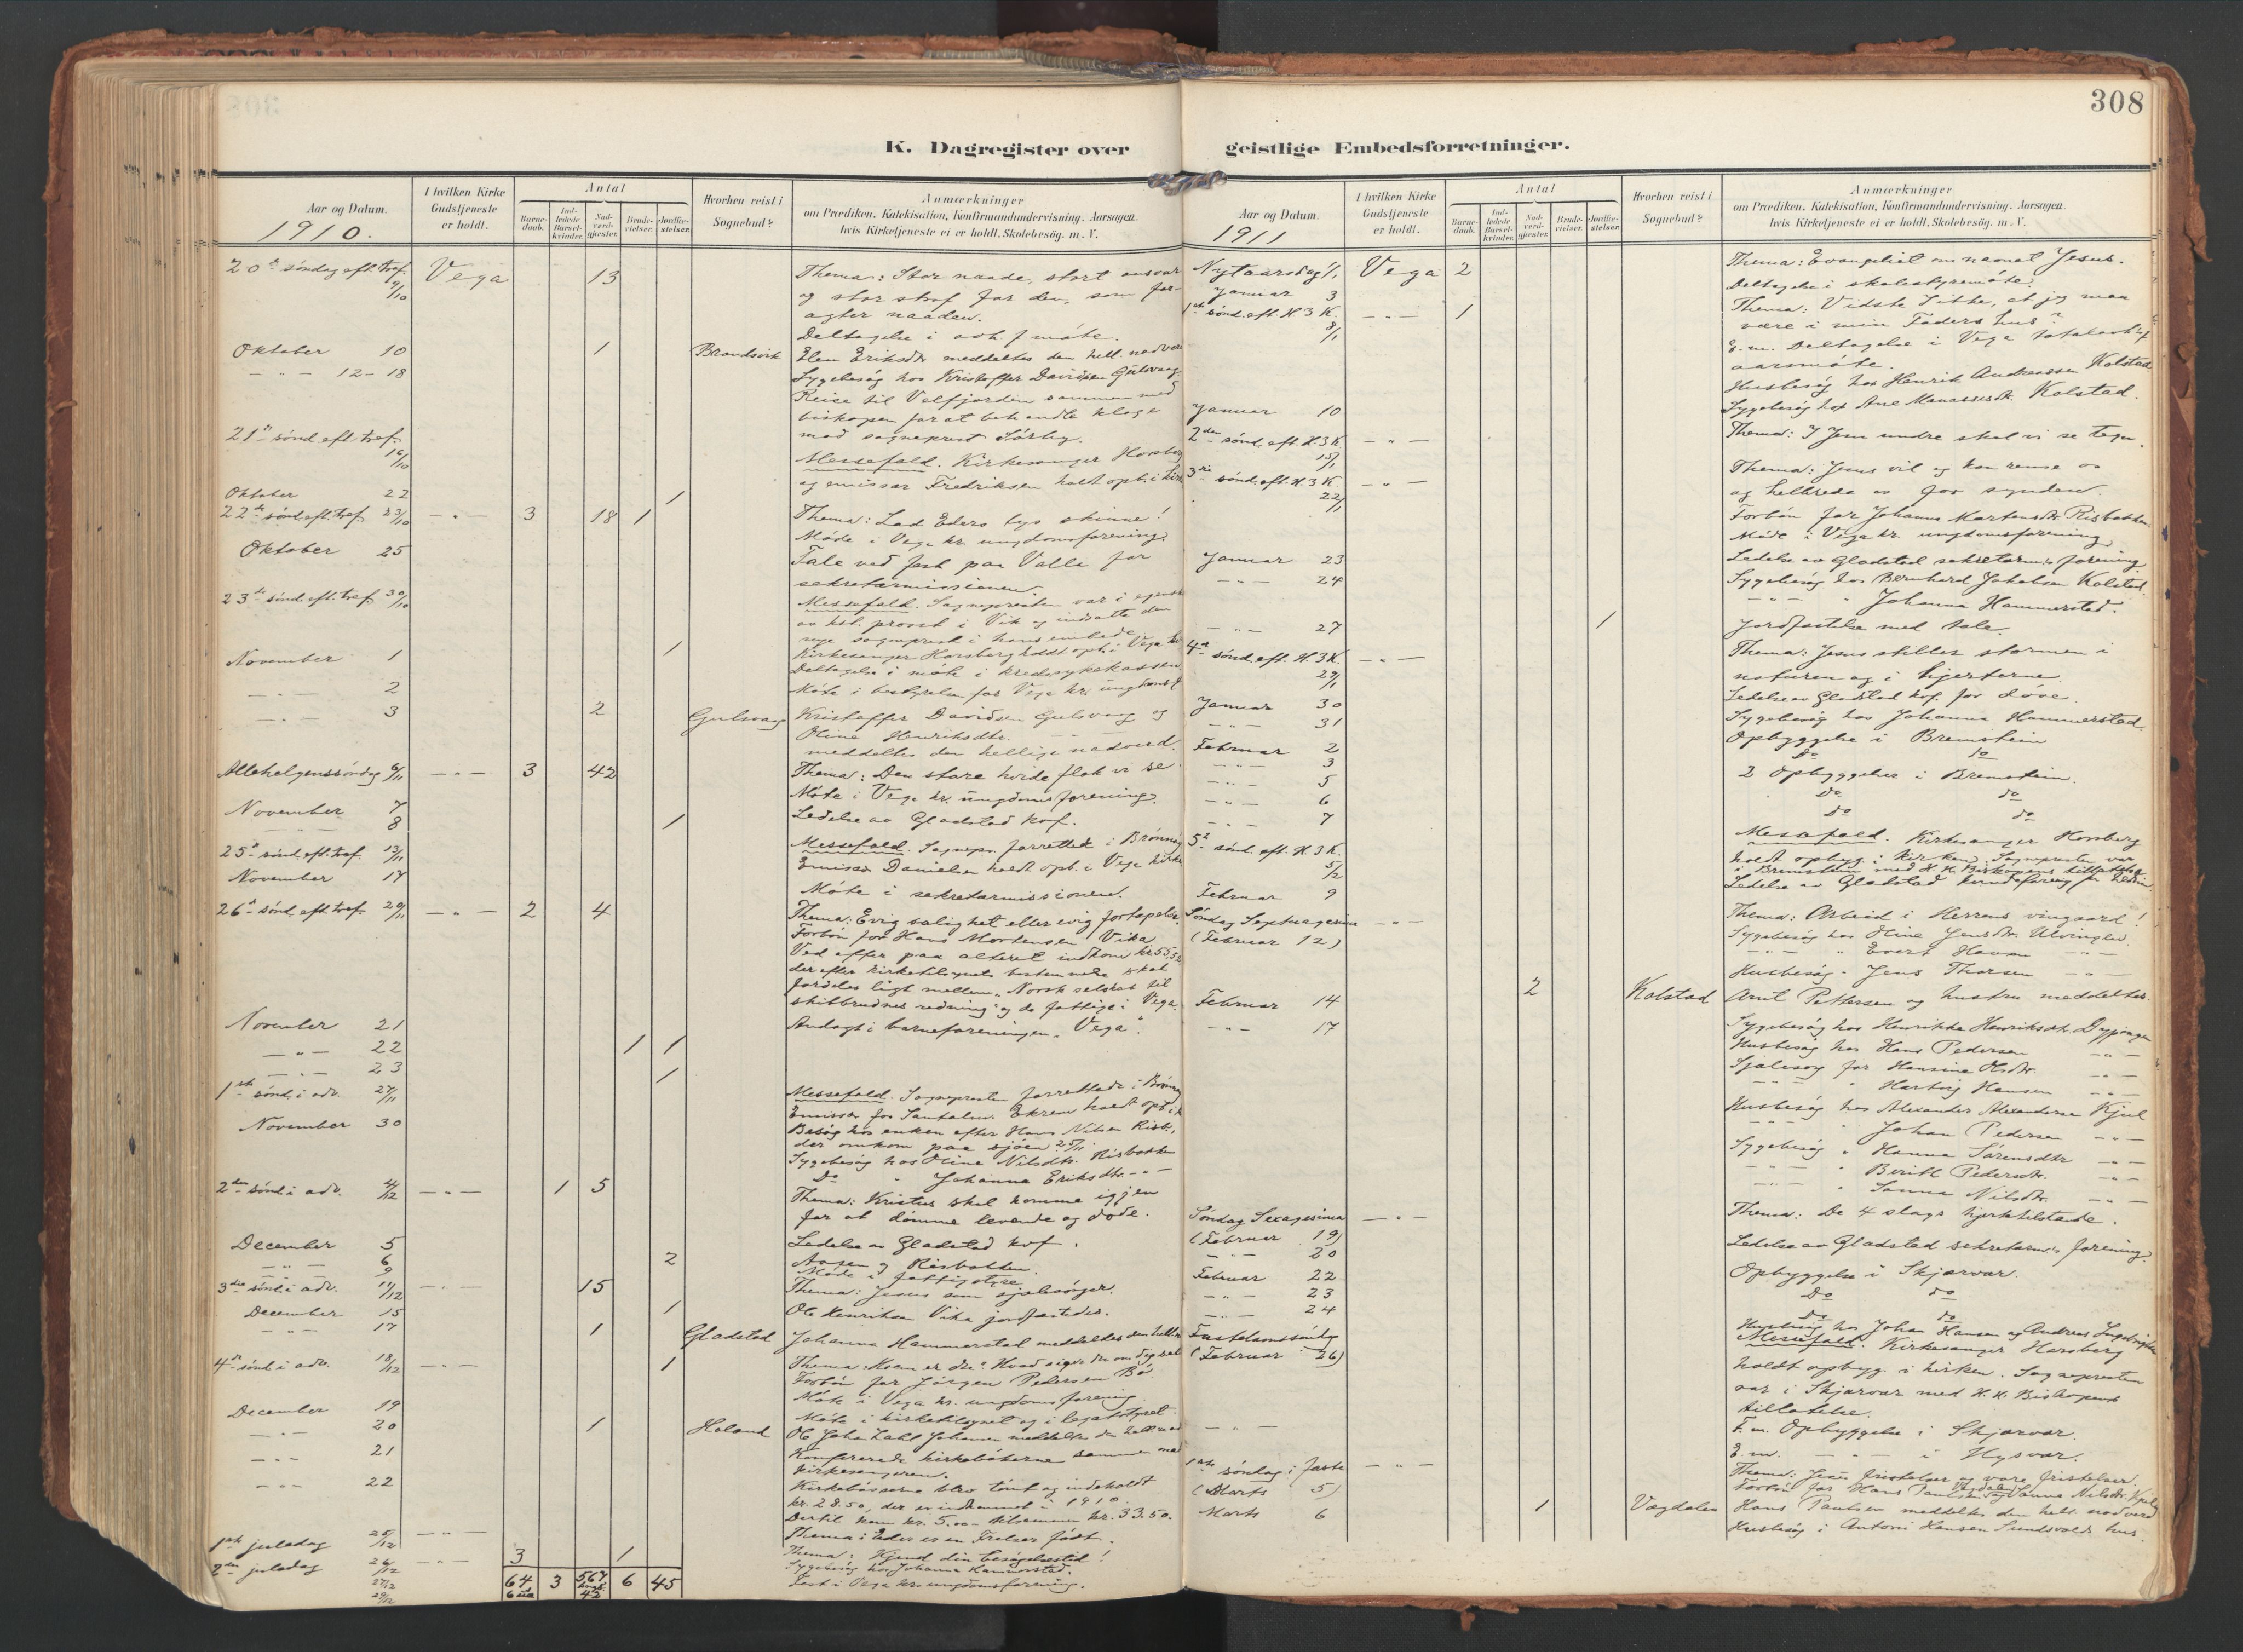 308
K. Dagregister over
geistlige Embedsforretninger.
Aar og Datum.
1910.
I hvilken Kirke
Gudstjeneste
er holdt.
Antal
Barne-
daab.
Ind-
ledede
Barsel-
kvinder.
Nad-
verd-
gjæster.
Brude-
vielser.
Jordfæ-
stelser.
Hvorhen reist i
Sognebud?
Anmærkninger
om Prædiken, Katekisation, Konfirmandundervisning, Aarsagen,
hvis Kirketjeneste ei er holdt, Skolebesøg. m. V.
20de søndag eft. tref. 9/10 Vega 13 Thema: Stor naade, stort ansvar
og stor straf for den, som for-
agter naaden.
Deltagelse i avh.f møte.
Oktober 10 1 Brandsvik Elen Eriksdtr. meddeltes den hell. nadver
Sygebesøg hos Kristoffer Davidsen Gulsvaag
— " — 12-18 Reise til Velfjorden sammen med
biskopen for at behandle klage
mod sogneprest Sørby.
21de sønd. eft. tref. 16/10 Messefald. Kirkesanger Horsberg
og emissær Fredriksen holdt opb. i kirk
Oktober 22 1
22de sønd. eft. tref. 23/10 — " — 3 18 1 Thema: Lad Eders lys skinne!
Møde i Vega kr. ungdomsforening.
Oktober 25 Tale ved fest paa Valla for
sekretærmissionen.
23de sønd. eft. tref. 30/10 Messefald. Sognepresten var i egensk
av kst. provst i Vik og indsatte den
nye sogneprest i hans embede.
Kirkesanger Horsberg holdt opb. i Vega k
November 1 1 Deltagelse i møte i kredssykekassen
— " — 2 Møte i bestyrelsen for Vega kr. ungdomsf
— " — 3 2 Gulsvaag Kristoffer Davidsen Gulsvaag og
Oline Henriksdtr. — " —
meddeltes den hellige nadverd.
Allehelgenssøndag 6/11 — " — 3 42 Thema: Den store hvide flok vi se
Møte i Vega kr. ungdomsforening.
November 7 Ledelse av Gladstad kof.
8 1
25de sønd. eft. tref. 13/11 Messefald. Sognepr. forrettet i Brønnøy
Emissær Danielsen holdt opb. i Vega kirke
November 17 Møte i sekretærmissionen.
26de sønd. eft. tref. 20/11 — " — 2 4 Thema: Evig salighet eller evig fortapelse.
Forbøn for Hans Mortensen Vika
Ved offer paa alteret indkom kr. 55,32
der efter kirketilsynets bestemmelse skal
fordeles ligt mellem „Norsk selskab til
skibbrudnes redning" og de fattige i Vega.
November 21 Andagt i barneforeningen „Vega".
— " — 22 1 1
— " — 23 1
1ste sønd. i adv. 27/11 Messefald. Sognepresten forrettede i Brønnøy
Emissær for Santalm. Ekren holdt opb. i k
November 30 Besøg hos enken efter Hans Nilsen Risb.,
der omkom paa sjøen 25/11.
Sygebesøg hos Oline Nilsdtr. Risbakken
Do " Johanna Eriksdtr. — " —
2den sønd. i adv. 4/12 — " — 1 5 Thema: Kristus skal komme igjen
for at dømme levende og døde.
December 5 Ledelse av Gladstad kof.
— " — 6 2 Aasen og Risbakken.
— " — 9 Møde i fattigstyre
3die sønd. i adv. 11/12 — " — 15 Thema: Jesus som sjælesørger.
December 15 1 Ole Henriksen Vika jordfæstedes.
— " — 17 1 Gladstad Johanna Hammerstad meddeltes den hellige
4de sønd. i adv. 18/12 — " — 1 Thema: Hvem er du? Hvad siger du om dig selv
Forbøn for Jørgen Pedersen Bø
Møte i Vega kr. ungdomsforening.
December 19 Møte i kirketilsynet og i legatstyret.
— " — 20 1 Holand
— " — 21 Konfererede kirkebøkerne sammen med
kirkesangeren.
— " — 22 Kirkebøsserne blev tømt og indeholdt
kr. 28.50, der er indkommet i 1910.
Dertil kom kr. 5.00 - tilsammen kr. 33.50.
1ste juledag 25/12 — " — Thema: Eder er en Frelser født.
2den juledag 26/12 — " — 3 1 Thema: Kjend din besøgelsestid!
27/12 Sygebesøg hos Johanna Hammerstad.
29/12 Fest i Vega kr. ungdomsforening.
64 3 567 6 45
Aar og Datum.
1911
I hvilken Kirke
Gudstjeneste
er holdt.
Antal
Barne-
daab.
Ind-
ledede
Barsel-
kvinder.
Nad-
verd-
gjæster.
Brude-
vielser.
Jordfæ-
stelser.
Hvorhen reist i
Sognebud?
Anmærkninger
om Prædiken, Katekisation, Konfirmandundervisning, Aarsagen,
hvis Kirketjeneste ei er holdt, Skolebesøg. m. V.
Nytaarsdag 1/1 Vega 2 Thema: Evangeliet om navnet Jesus.
Januar 3 Deltagelse i skolestyremøte.
1ste sønd. eft. H 3 K. 8/1 — " — 1 Thema: Vidste I ikke, at jeg maa
være i min Faders hus?
E.m. Deltagelse i Vega totalavh.f
aarsmøte.
Husbesøg hos Henrik Andreassen Kolstad
Januar 10 Sygebesøg hos Ane Manassesdtr. Kolstad.
2den sønd. eft. H 3 K. 15/1 — " — Thema: I Jesu undre skal vi se tegn.
3die sønd. eft. H. 3 K. 22/1 — " — Thema: Jesus vil og kan rense os
og helbrede os for synden.
Forbøn for Johanna Martensdtr. Risbakken.
Møde i Vega kr. ungdomsforening.
Januar 23 Ledelse av Gladstad sekretærm.s forening
— " — 24 Sygebesøg hos Bernhard Jakobsen Kolstad.
— " — " Johanna Hammerstad.
— " — 27 1 Jordfæstelse med tale.
4de sønd. eft. H. 3 K. 29/1 — " — Thema: Jesus stiller stormen i
naturen og i hjerterne.
Januar 30 Ledelse av Gladstad kof. for døve.
— " — 31 Sygebesøg hos Johanna Hammerstad.
Februar 2 Opbyggelse i Bremstein
— " — 3 Do do
— " — 5 2 Opbyggelser i Bremstein.
— " — 6 Do do
— " — 7 Do do
5te sønd. eft. H. 3 K. 5/2 Messefald. Kirkesanger Horsberg
holdt opbyg. i kirken. Sognepresten var
i Bremstein med H. H. Biskopens tillatelse.
Februar 9 Ledelse av Gladstad
Søndag Septuagesima — " — Thema: Arbeid i Herrens vingaard!
(Februar 12) Sygebesøg hos Oline Jensdtr. Ulvingen.
— " — " Evert — " —
Husbesøg " Jens Thorsen — " —
Februar 14 2 Kolstad Arnt Pettersen og hustru meddeltes
— " — 17 Sygebesøg hos Henrikke Henriksdtr. Dypingen
Husbesøg hos Hans Pedersen — " —
Sjælesorg for Hansine Olsdtr. — " —
— " — " Hartvig Hansen — " —
Husbesøg hos Alexander Alexandersen Kjul
— " — " Johan Pedersen — " —
Sygebesøg " Hanna Sørensdtr — " —
— " — " Berith Pedersdtr. — " —
— " — " Sanna Nilsdtr. — " —
Søndag Sexagesima — " — Thema: De 4 slags hjertetilstande.
(Februar 19)
— " — 20 Ledelse av Gladstad sekretærm.s forening.
Februar 22 Opbyggelse i Skjærvær.
— " — 23 Do do
— " — 24 Do do
Husbesøg hos Johan Hansen og Andreas Ingebrigtsen
Fastelavnssøndag Messefald. Kirkesanger Horsberg
(Februar 26) holdt opbyg. i kirken. Sognepresten
var i Skjærvær med H. H. Biskopens
tillatelse.
— " — F.m. Opbyggelse i Skjærvær.
E.m. — " — i Hysvær.
1ste søndag i faste — " — Thema: Jesu fristelser og vore fristelser.
(Marts 5) Forbøn for Hans Paulsen Vegdalen og Sanna Nilsdtr.
Marts 6 1 Vægdalen Hans Paulsen meddeltes den hell. nadverd
Husbesøg i Antoni Hansen Sundsvolds hus